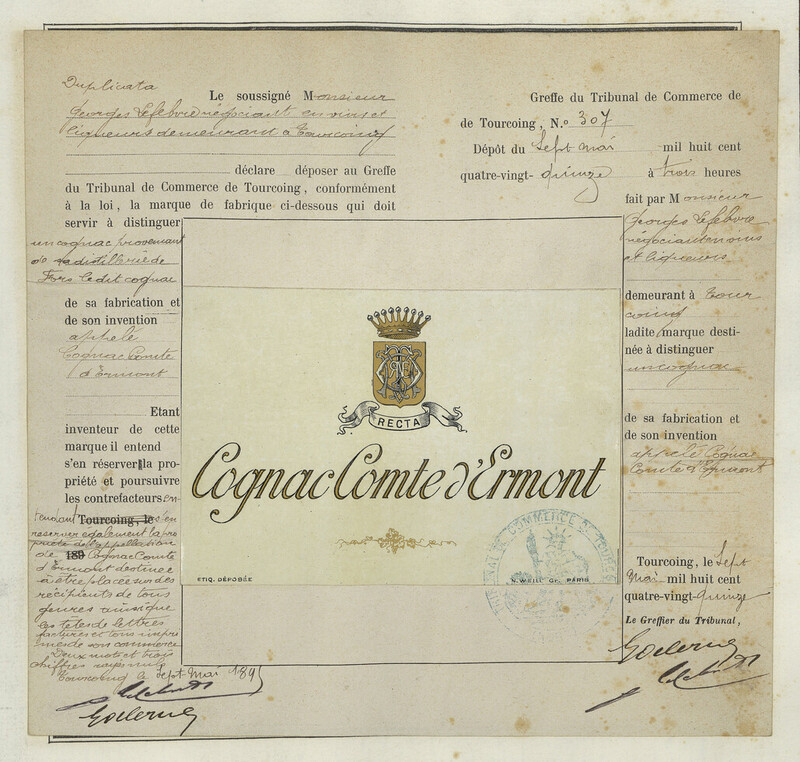 Duplicata
Le soussigné Monsieur
Georges Lefebvre négociant en vins et
liqueurs demeurant à Tourcoing
déclare déposer au Greffe
du Tribunal de Commerce de Tourcoing, conformément
à la loi, la marque de fabrique ci-dessous qui doit
servir à distinguer
un cognac provenant
de sa distillerie de
ledit cognac
de sa fabrication et
de son invention
appelé
Cognac Comte
d'Ermont
Etant
inventeur de cette
marque il entend
s'en réserver la pro-
priété et poursuivre
les contrefacteurs en-
tendant Tourcoing, le s'en
réserver également la pro
priété de l'appellation
de 189 Cognac Comte
d'Ermont destinée
à être placée sur des
récipients de tous
genres ainsi que
les têtes de lettres
factures et tous impri
més de son commerce
Deux mots et trois
chiffres rayés nuls
Tourcoing le Sept Mai 1895
Greffe du Tribunal de Commerce de
de Tourcoing, N.o 307
Dépôt du Sept mai mil huit cent
quatre-vingt-quinze à trois heures
fait par Monsieur
Georges Lefebvre
négociant en vins
et liqueurs
demeurant à Tour
coing
ladite marque desti-
née à distinguer
un cognac
de sa fabrication et
de son invention
appelé Cognac
Comte d'Ermont
Tourcoing, le Sept
Mai mil huit cent
quatre-vingt-quinze
Le Greffier du Tribunal,
RECTA
Cognac Comte d'Ermont
ETIQ. DÉPOSÉE
N. WEILL Gr. PARIS
TRIBUNAL DE COMMERCE DE TOURCOING